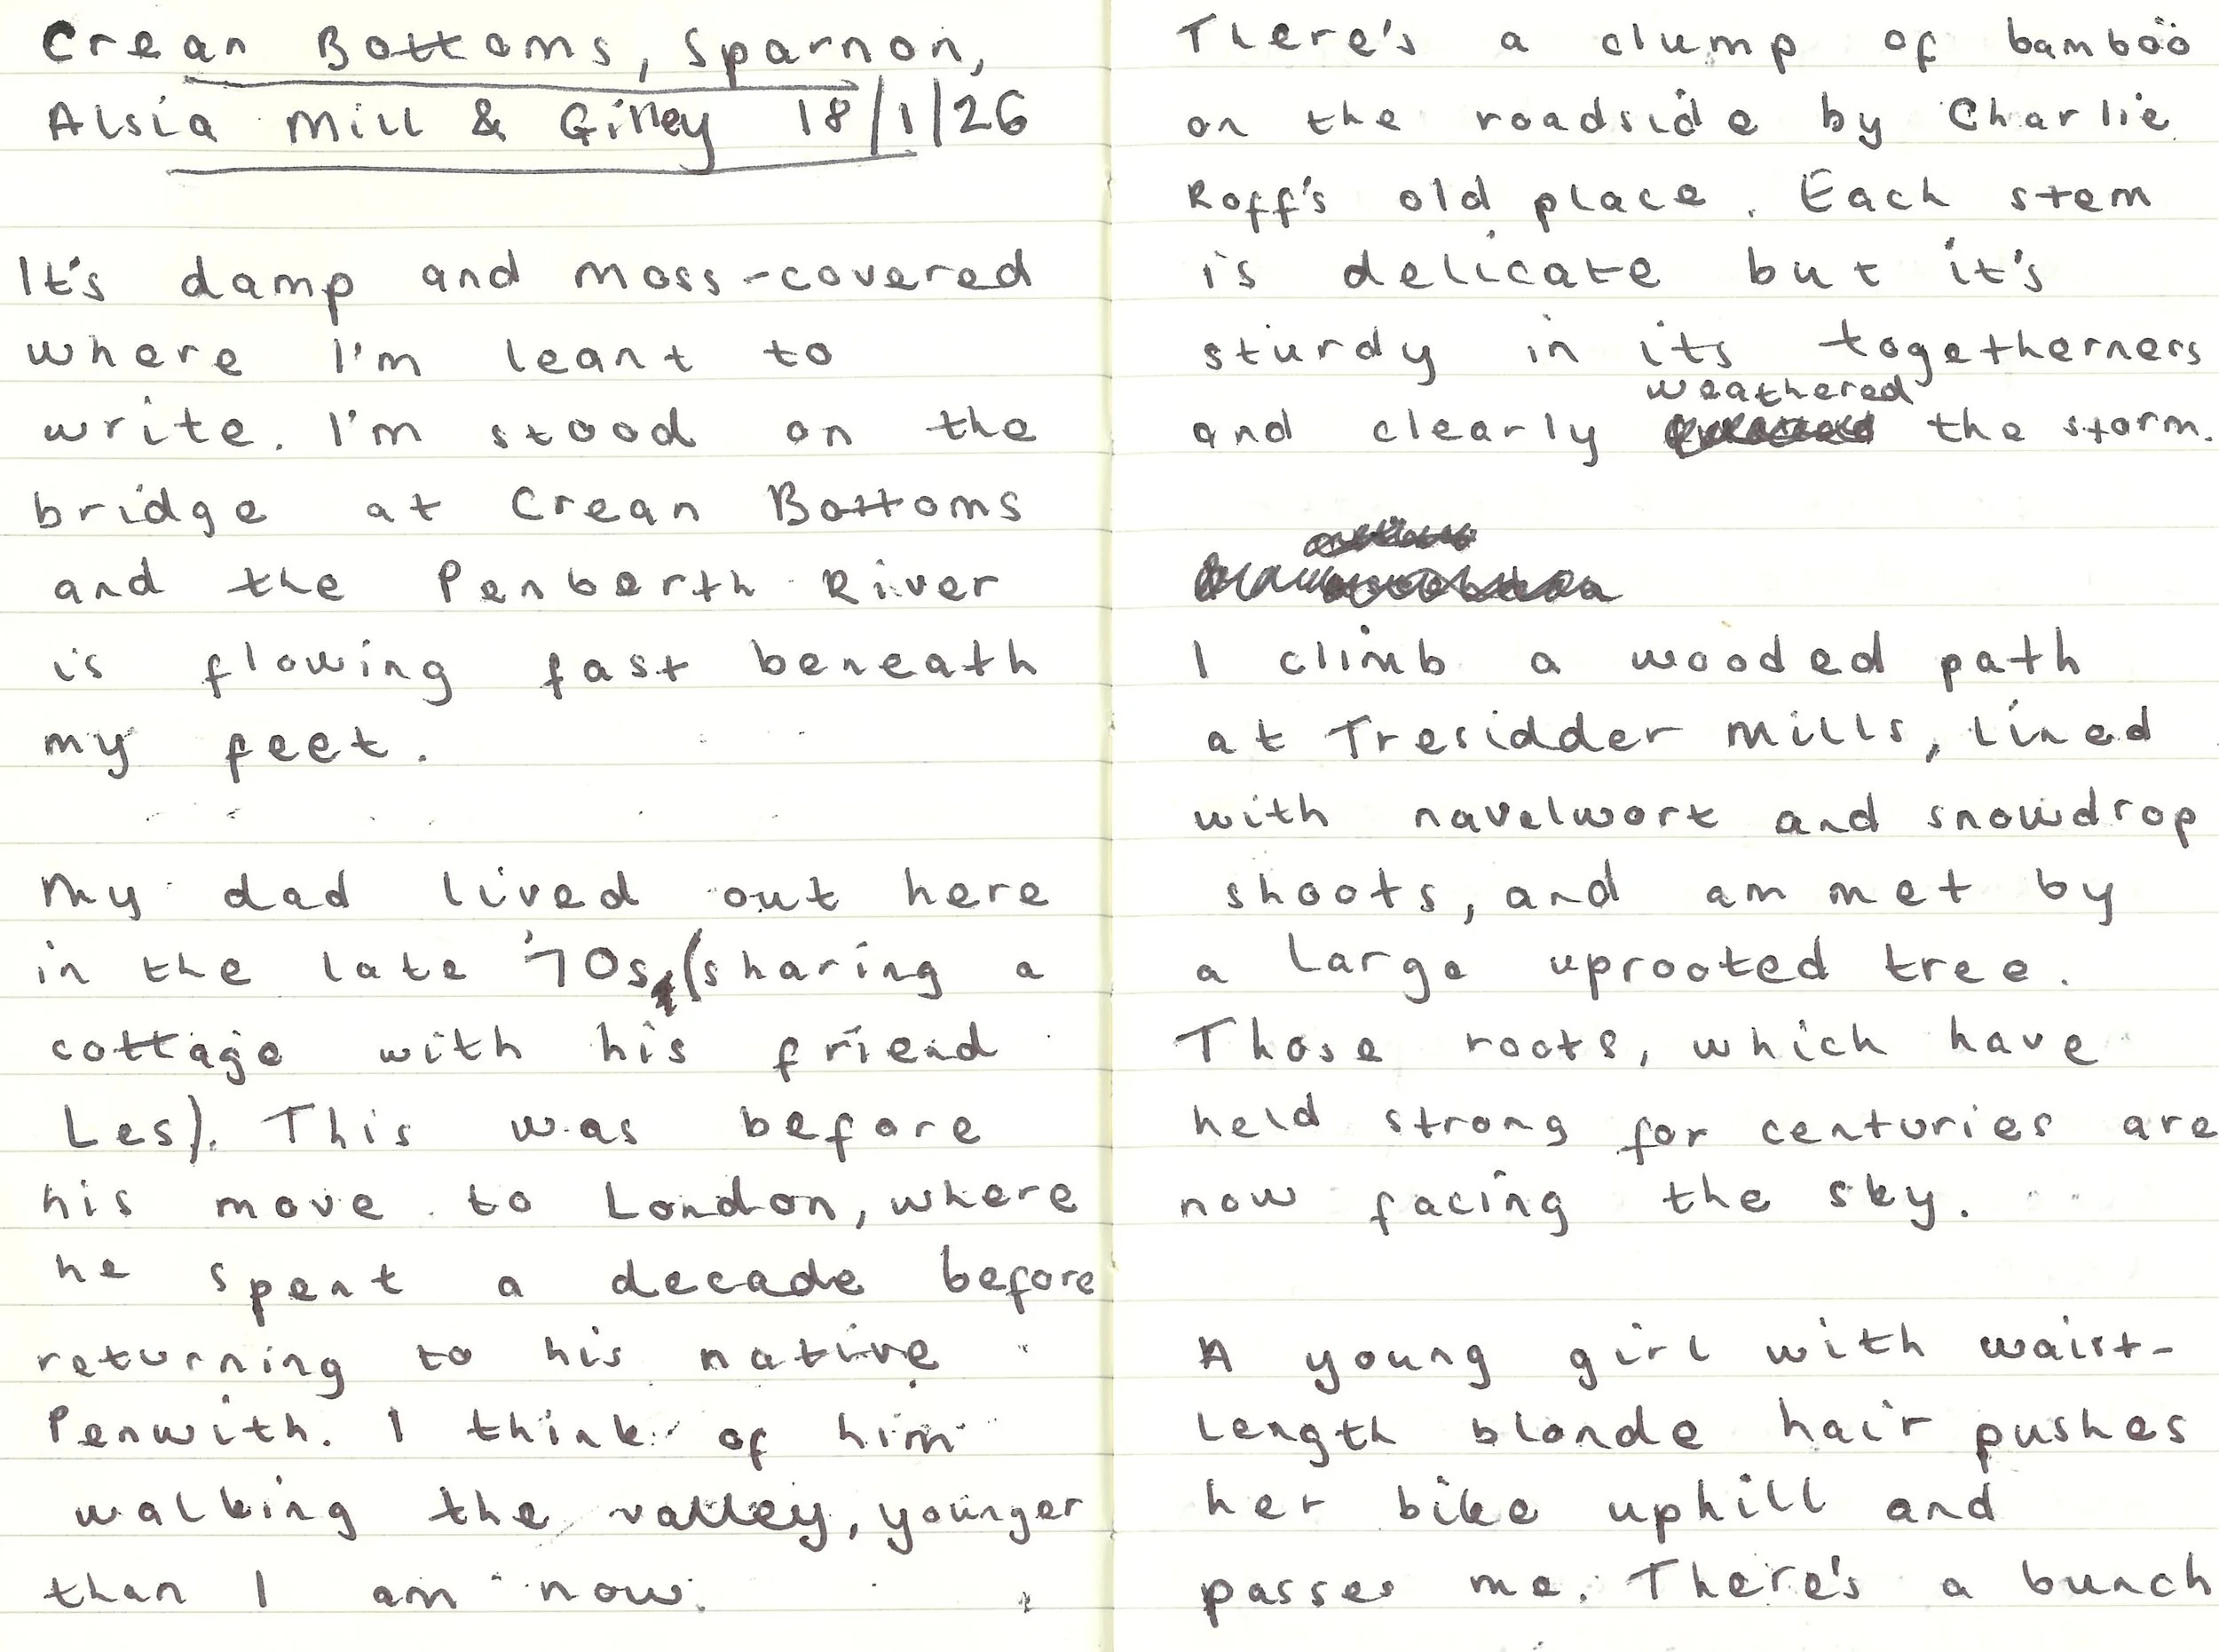 Crean Bottoms, Sparnon,
Alsia Mill & Gilley 18/1/26
It's damp and moss-covered
where I'm leant to
write. I'm stood on the
bridge at Crean Bottoms
and the Penberth River
is flowing fast beneath
my feet.
My dad lived out here
in the late '70s (sharing a
cottage with his friend
Les). This was before
his move to London, where
he spent a decade before
returning to his native
Penwith. I think of him
walking the valley, younger
than I am now.
There's a clump of bamboo
on the roadside by Charlie
Roff's old place. Each stem
is delicate but it's
sturdy in its togetherness
weathered
and clearly the storm.
I climb a wooded path
at Tresidder Mills, lined
with navelwort and snowdrop
shoots, and am met by
a large uprooted tree.
Those roots, which have
held strong for centuries are
now facing the sky.
A young girl with waist-
length blonde hair pushes
her bike uphill and
passes me. There's a bunch